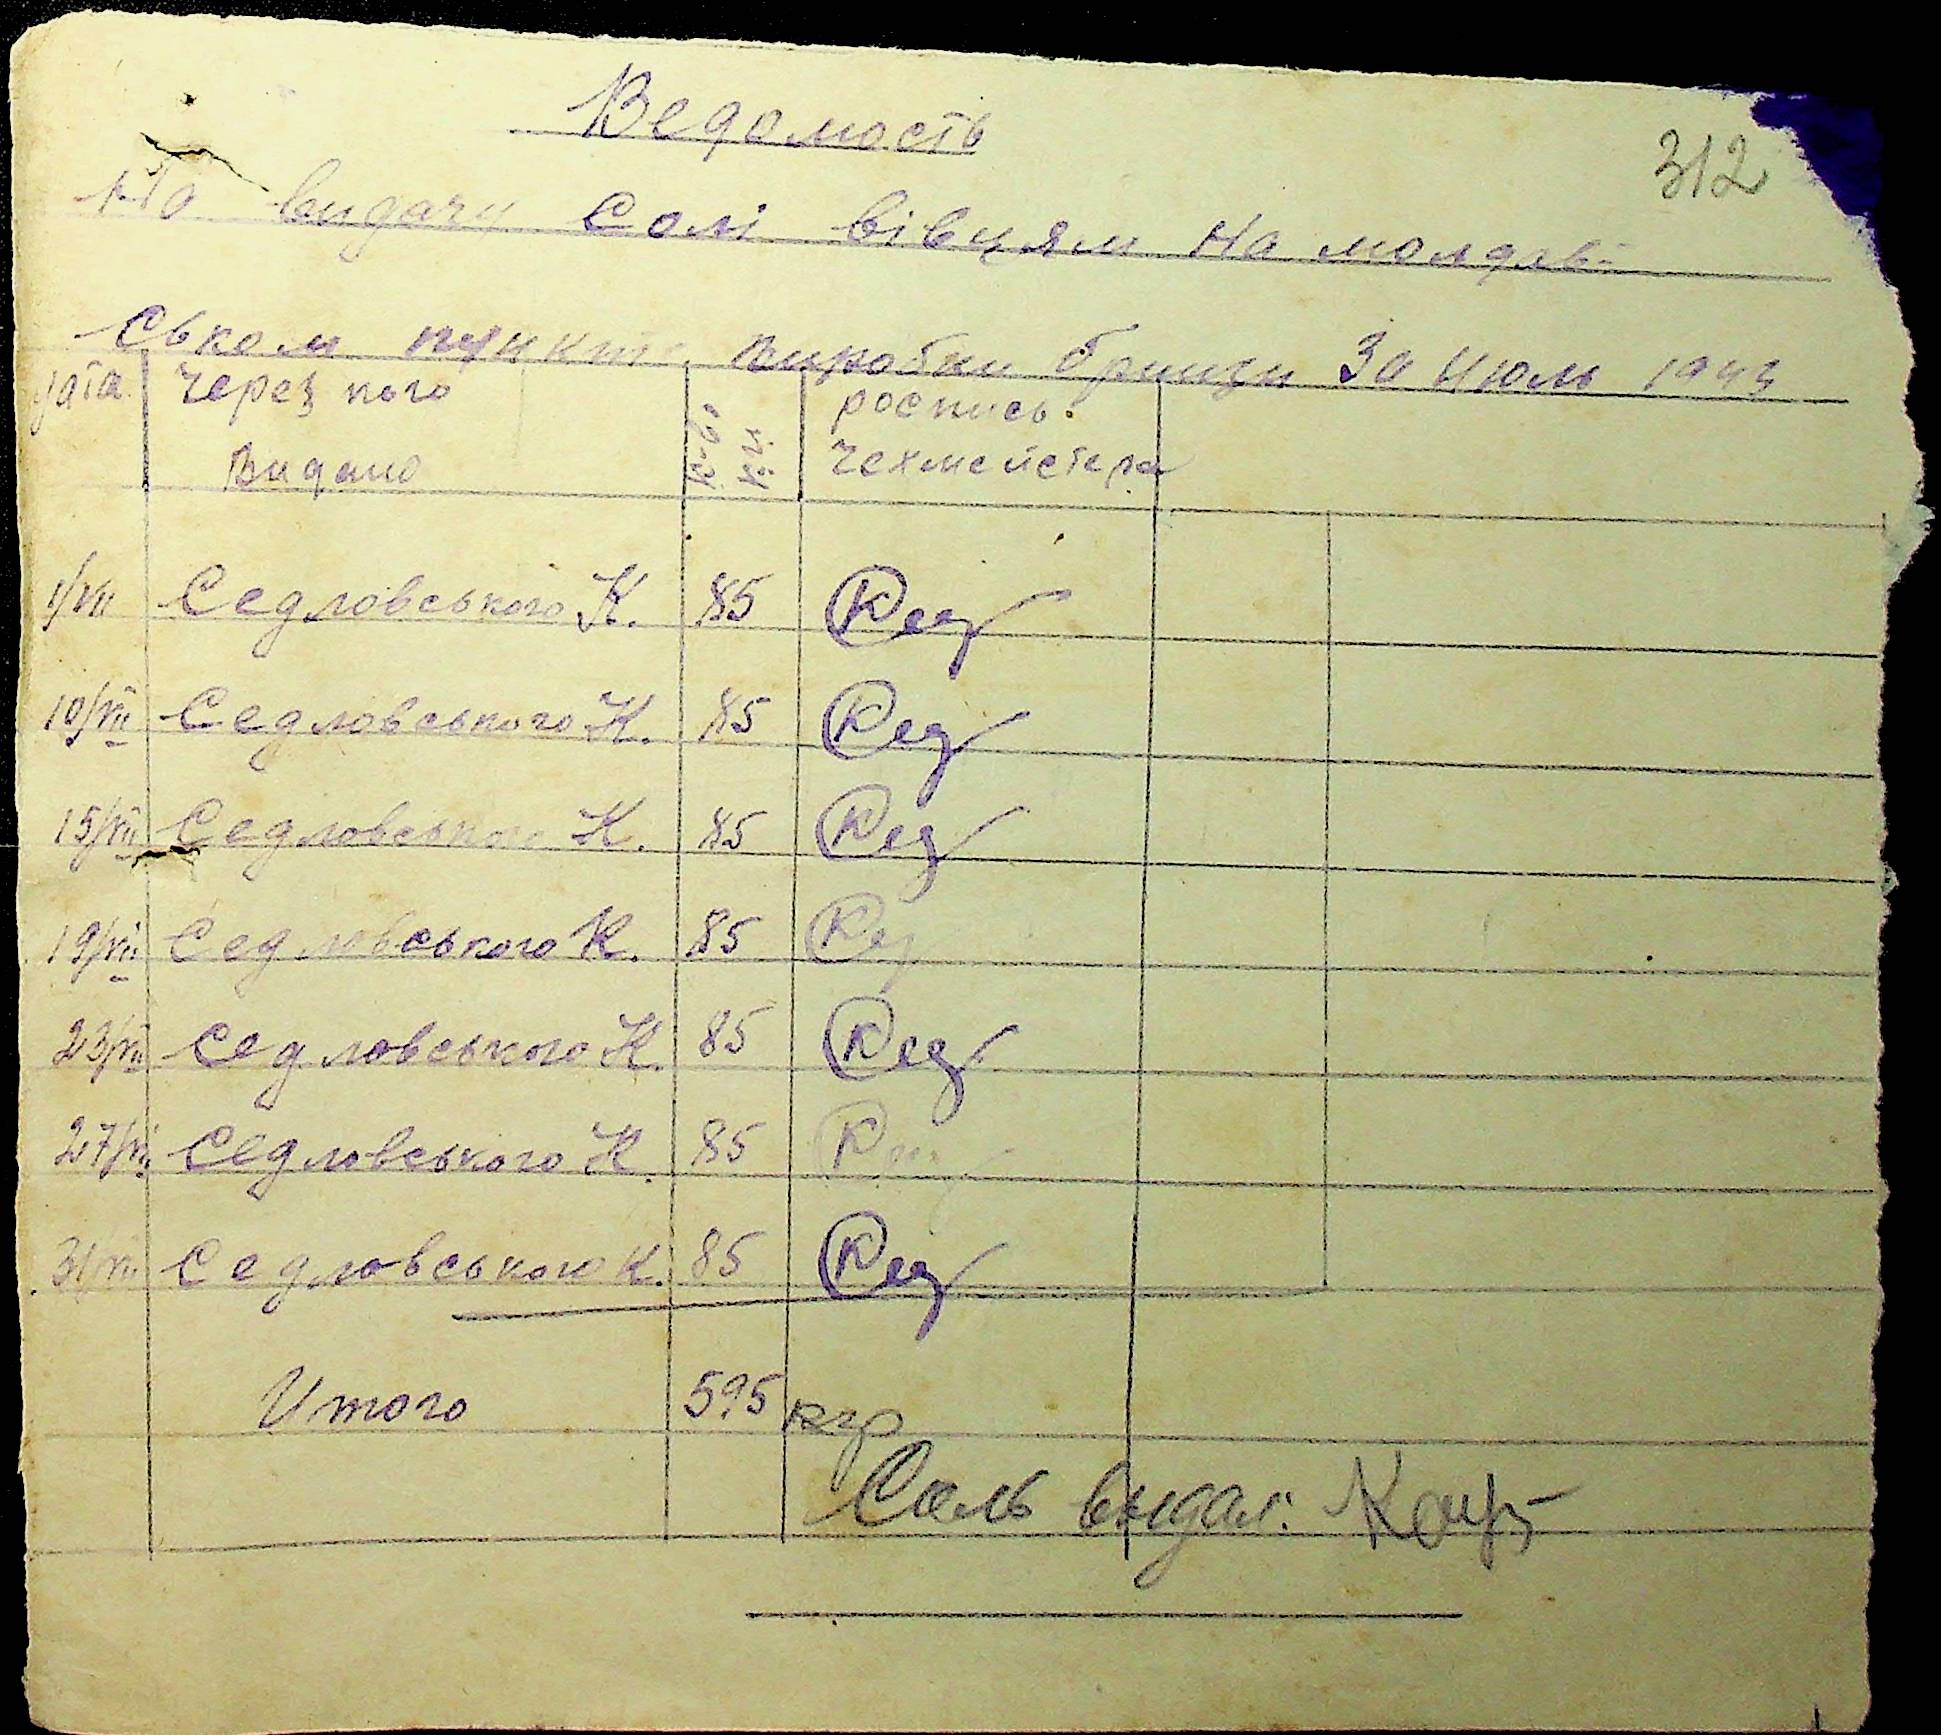 312
Ведомость
На видачу Солі вівцям на молдав-
ськом пункті виробки бринзи За Июль 1943
дата Через кого Видано к-во кг. роспись Чехмейстера
1/VII Седловського К. 85 Кед
10/VII Седловського К. 85 Кед
15/VII Седловського К. 85 Кед
19/VII Седловського К. 85 Кед
23/VII Седловського К. 85 Кед
27/VII Седловського К. 85
31/VII Седловського К. 85 Кед
Итого 595 кгр
Соль видал: